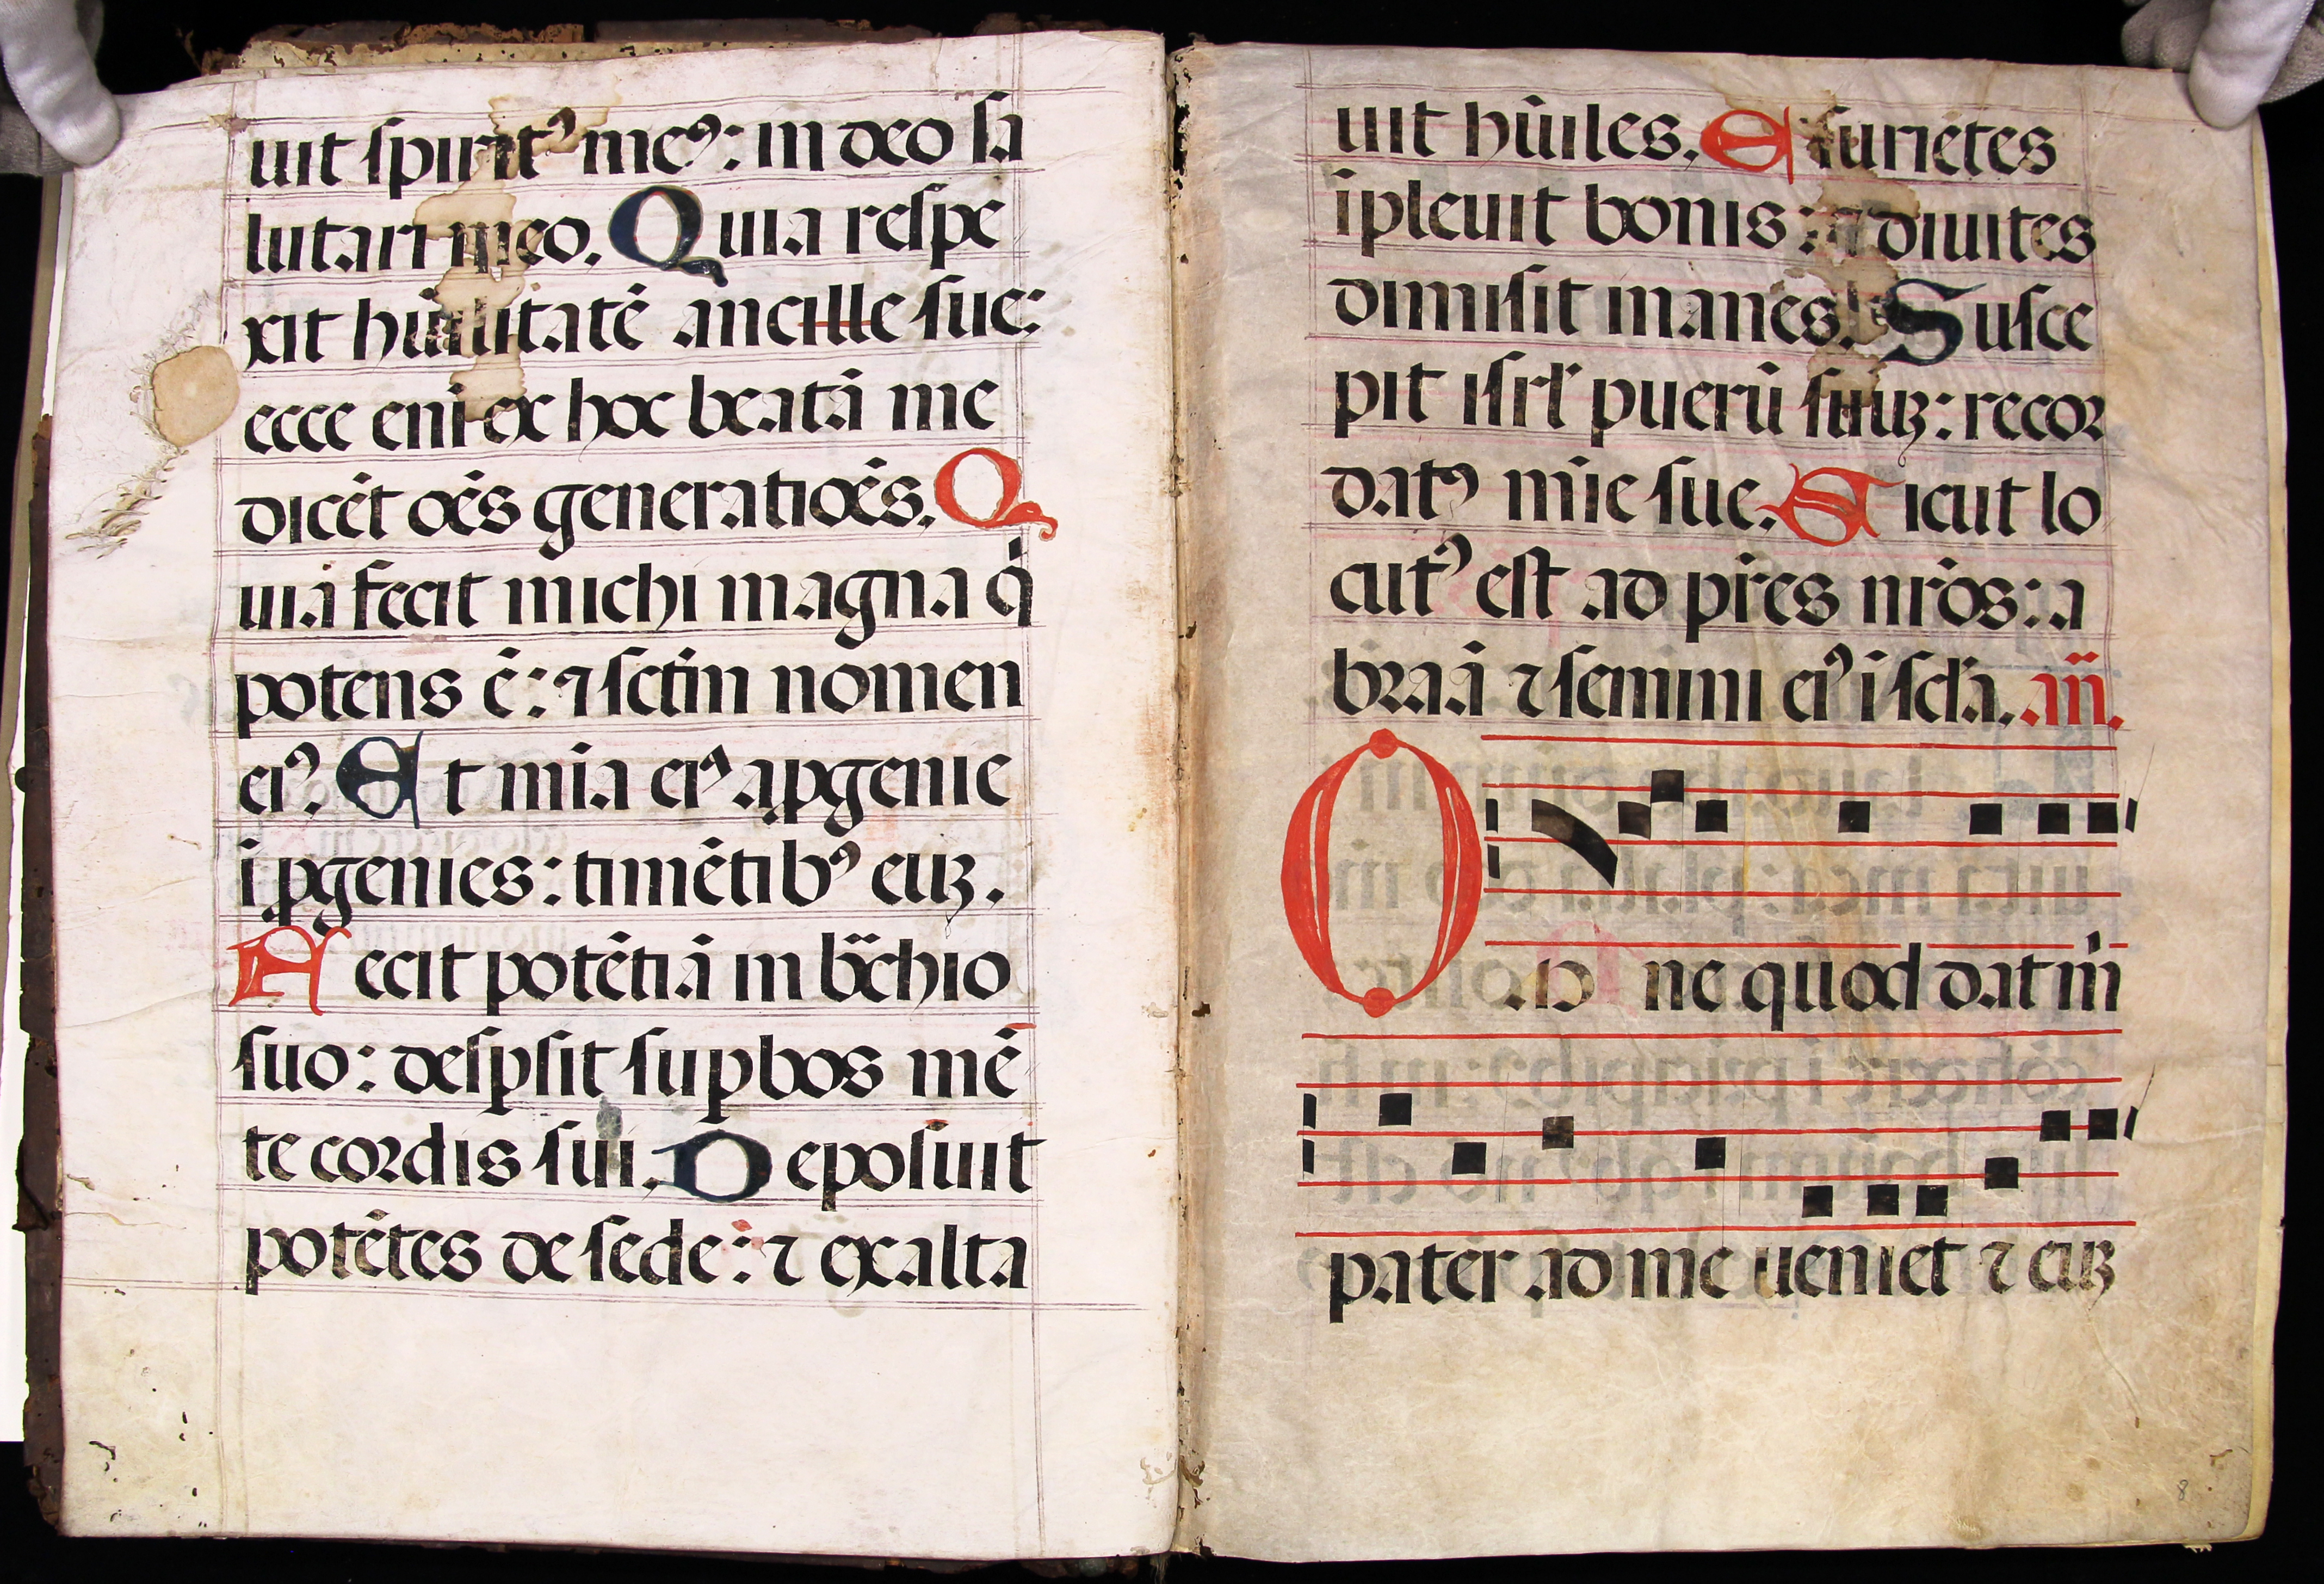 uit spiritꝰ meꝰ: in deo sa
lutari meo. Quia respe
xit hūilitatē ancille sue:
ecce eni ex hoc beatā me
dicēt oēs generatiōēs. Q
uia fecit michi magna q̄
potens ē: ⁊ sctm̄ nomen
eiꝰ. Et mīa eiꝰ a ꝓgenie
ī ꝓgenies: timētibꝰ euꝫ.
Fecit potētiā in bᷓchio
suo: desꝑsit suꝑbos mē
te cordis sui. Deposuit
potētes de sede: ⁊ exalta
uit hūiles. Esuriētes
īpleuit bonis: ⁊ diuites
dimisit inanēs. Susce
pit isrl̄ puerū suuꝫ: recor
datꝰ mīe sue. Sicut lo
cutꝰ est ad pr̄es nr̄os: a
braā ⁊ semini eiꝰ ī scl̄a. an̄.
O m̄ ne quod dat m̄
pater ad me ueniet ⁊ euꝫ
8